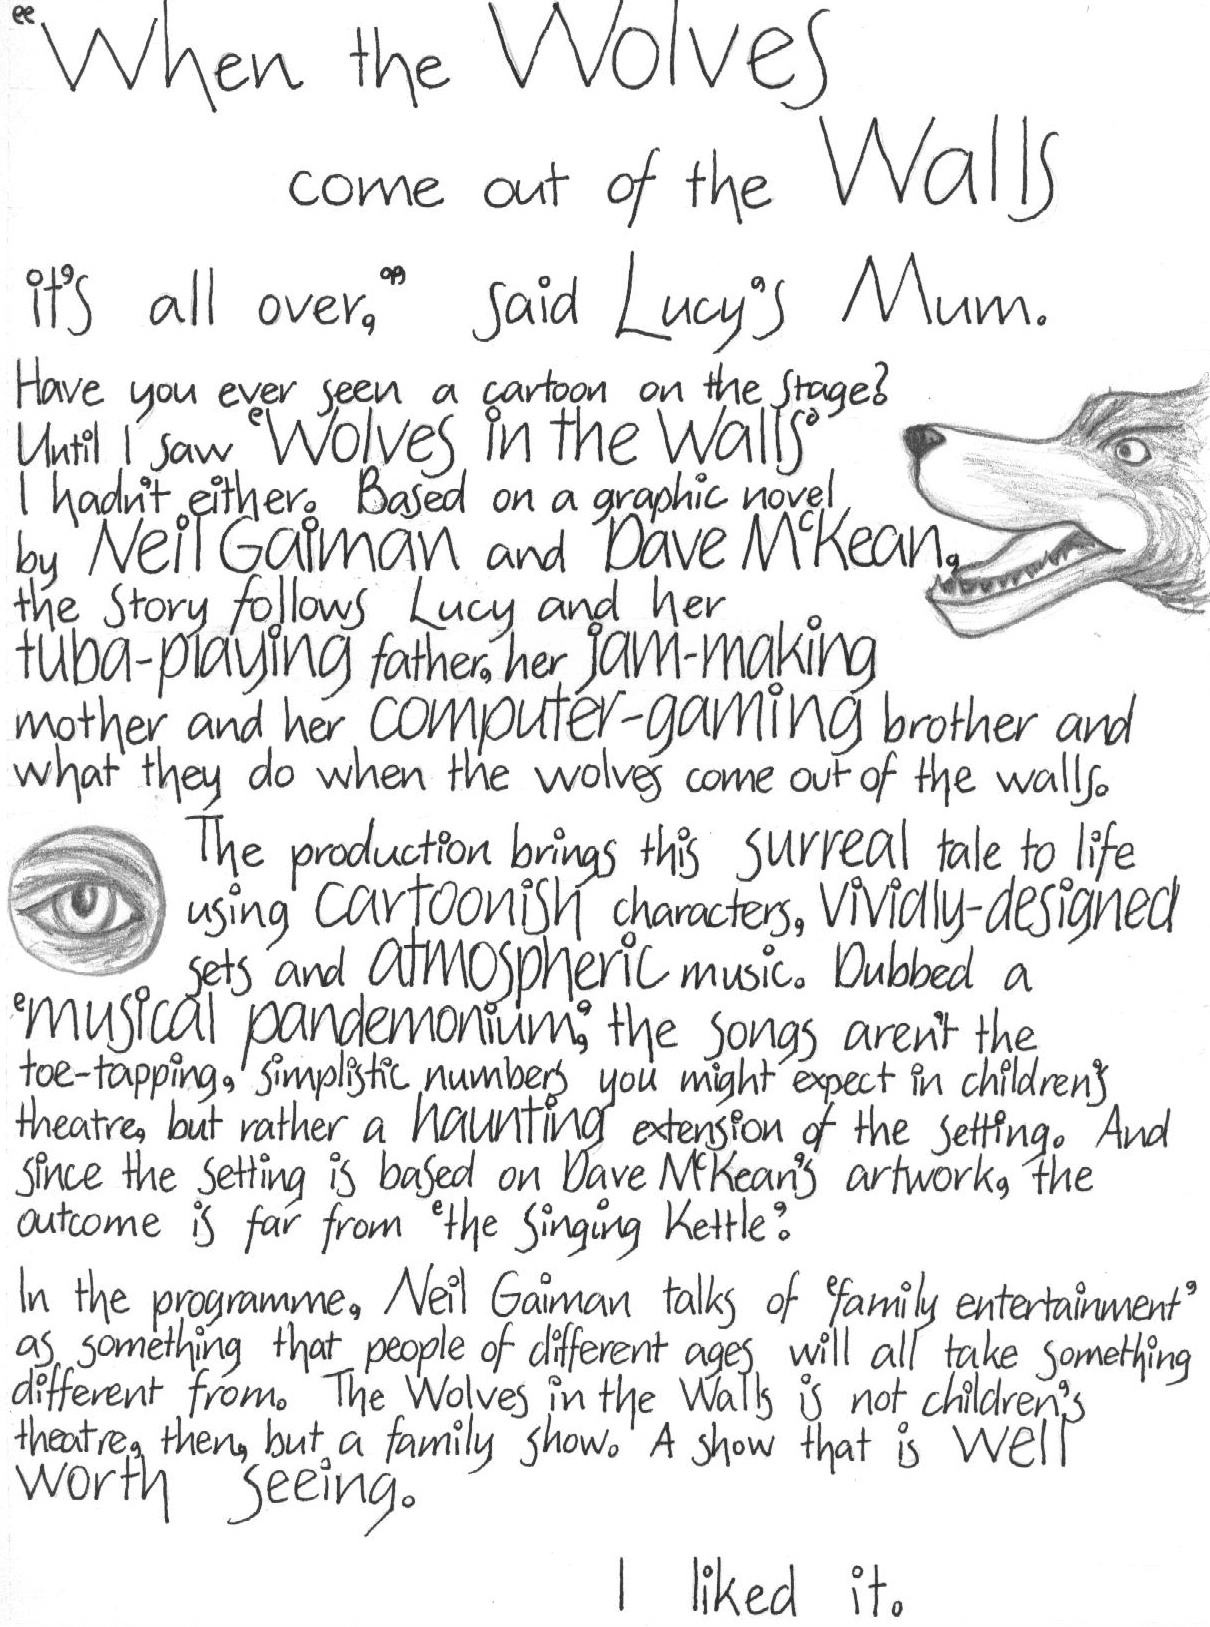 “When the Wolves
come out of the Walls
it's all over,” said Lucy's Mum.
Have you ever seen a cartoon on the stage?
Until I saw ‘Wolves in the Walls’
I hadn't either. Based on a graphic novel
by Neil Gaiman and Dave McKean,
the story follows Lucy and her
tuba-playing father, her jam-making
mother and her computer-gaming brother and
what they do when the wolves come out of the walls.
The production brings this surreal tale to life
using cartoonish characters, vividly-designed
sets and atmospheric music. Dubbed a
‘musical pandemonium’, the songs aren't the
toe-tapping, simplistic numbers you might expect in children's
theatre, but rather a haunting extension of the setting. And
since the setting is based on Dave McKean's artwork, the
outcome is far from ‘the Singing Kettle’.
In the programme, Neil Gaiman talks of ‘family entertainment’
as something that people of different ages will all take something
different from. The Wolves in the Walls is not children's
theatre, then, but a family show. A show that is well
worth seeing.
I liked it.